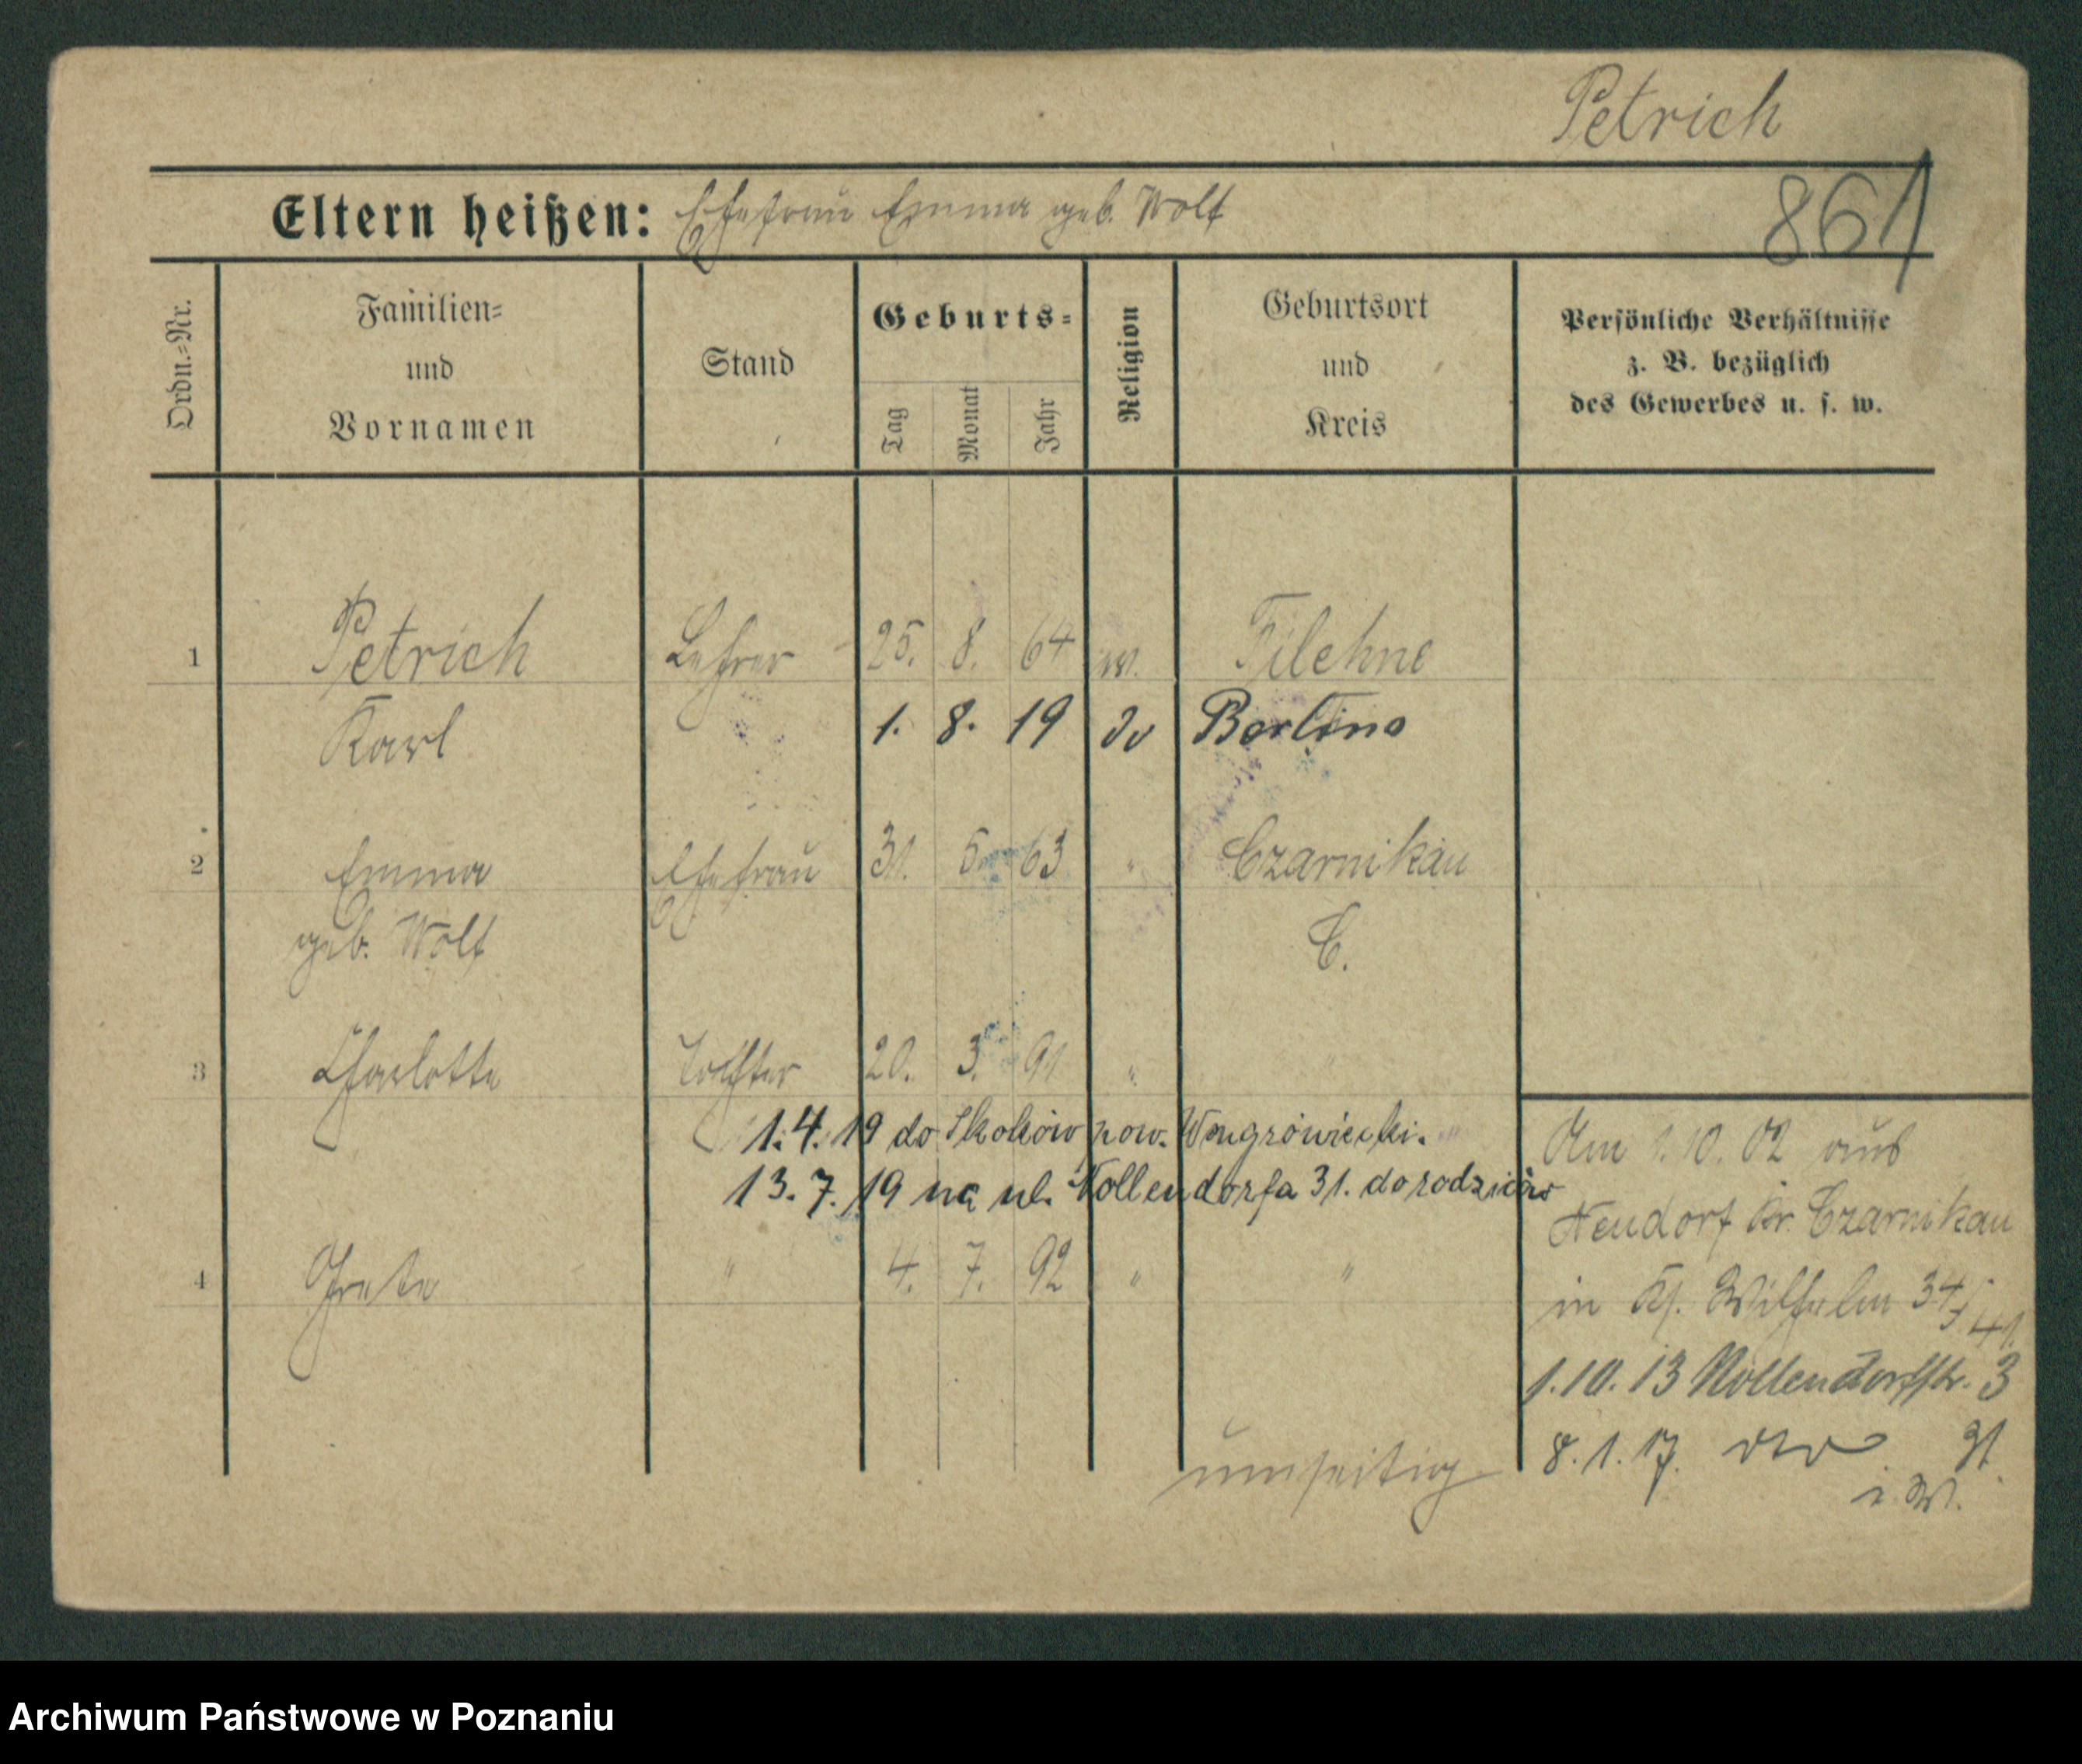 Petrich
861
Eltern heißen: Ehefrau Emma geb. Wolf
Ordn.=Nr.
Familien=
und
Vornamen
Stand
Geburts=
Tag
Monat
Jahr
Religion
Geburtsort
und
Kreis
Persönliche Verhältnisse
z. B. bezüglich
des Gewerbes u. s. w.
1 Petrich Lehrer 25. 8. 64 Filehne
Karl 1. 8. 19 do Berlina
2 Emma Ehefrau 31. 5. 63 " Czarnikau
geb. Wolf C.
3 Charlotte Tochter 20. 3. 91 " "
1.4.19 do Skoków pow. Wongrowiecki.
13.7.19 na ul. Nollendorfa 31. do rodziców
4 Grete " 4. 7. 92 " "
Am 1.10.02 aus
Neudorf Kr. Czarnikau
in Wilhelm 34
1.10.13 Nollendorfstr. 3
8.1.17.
umseitig
Archiwum Państwowe w Poznaniu